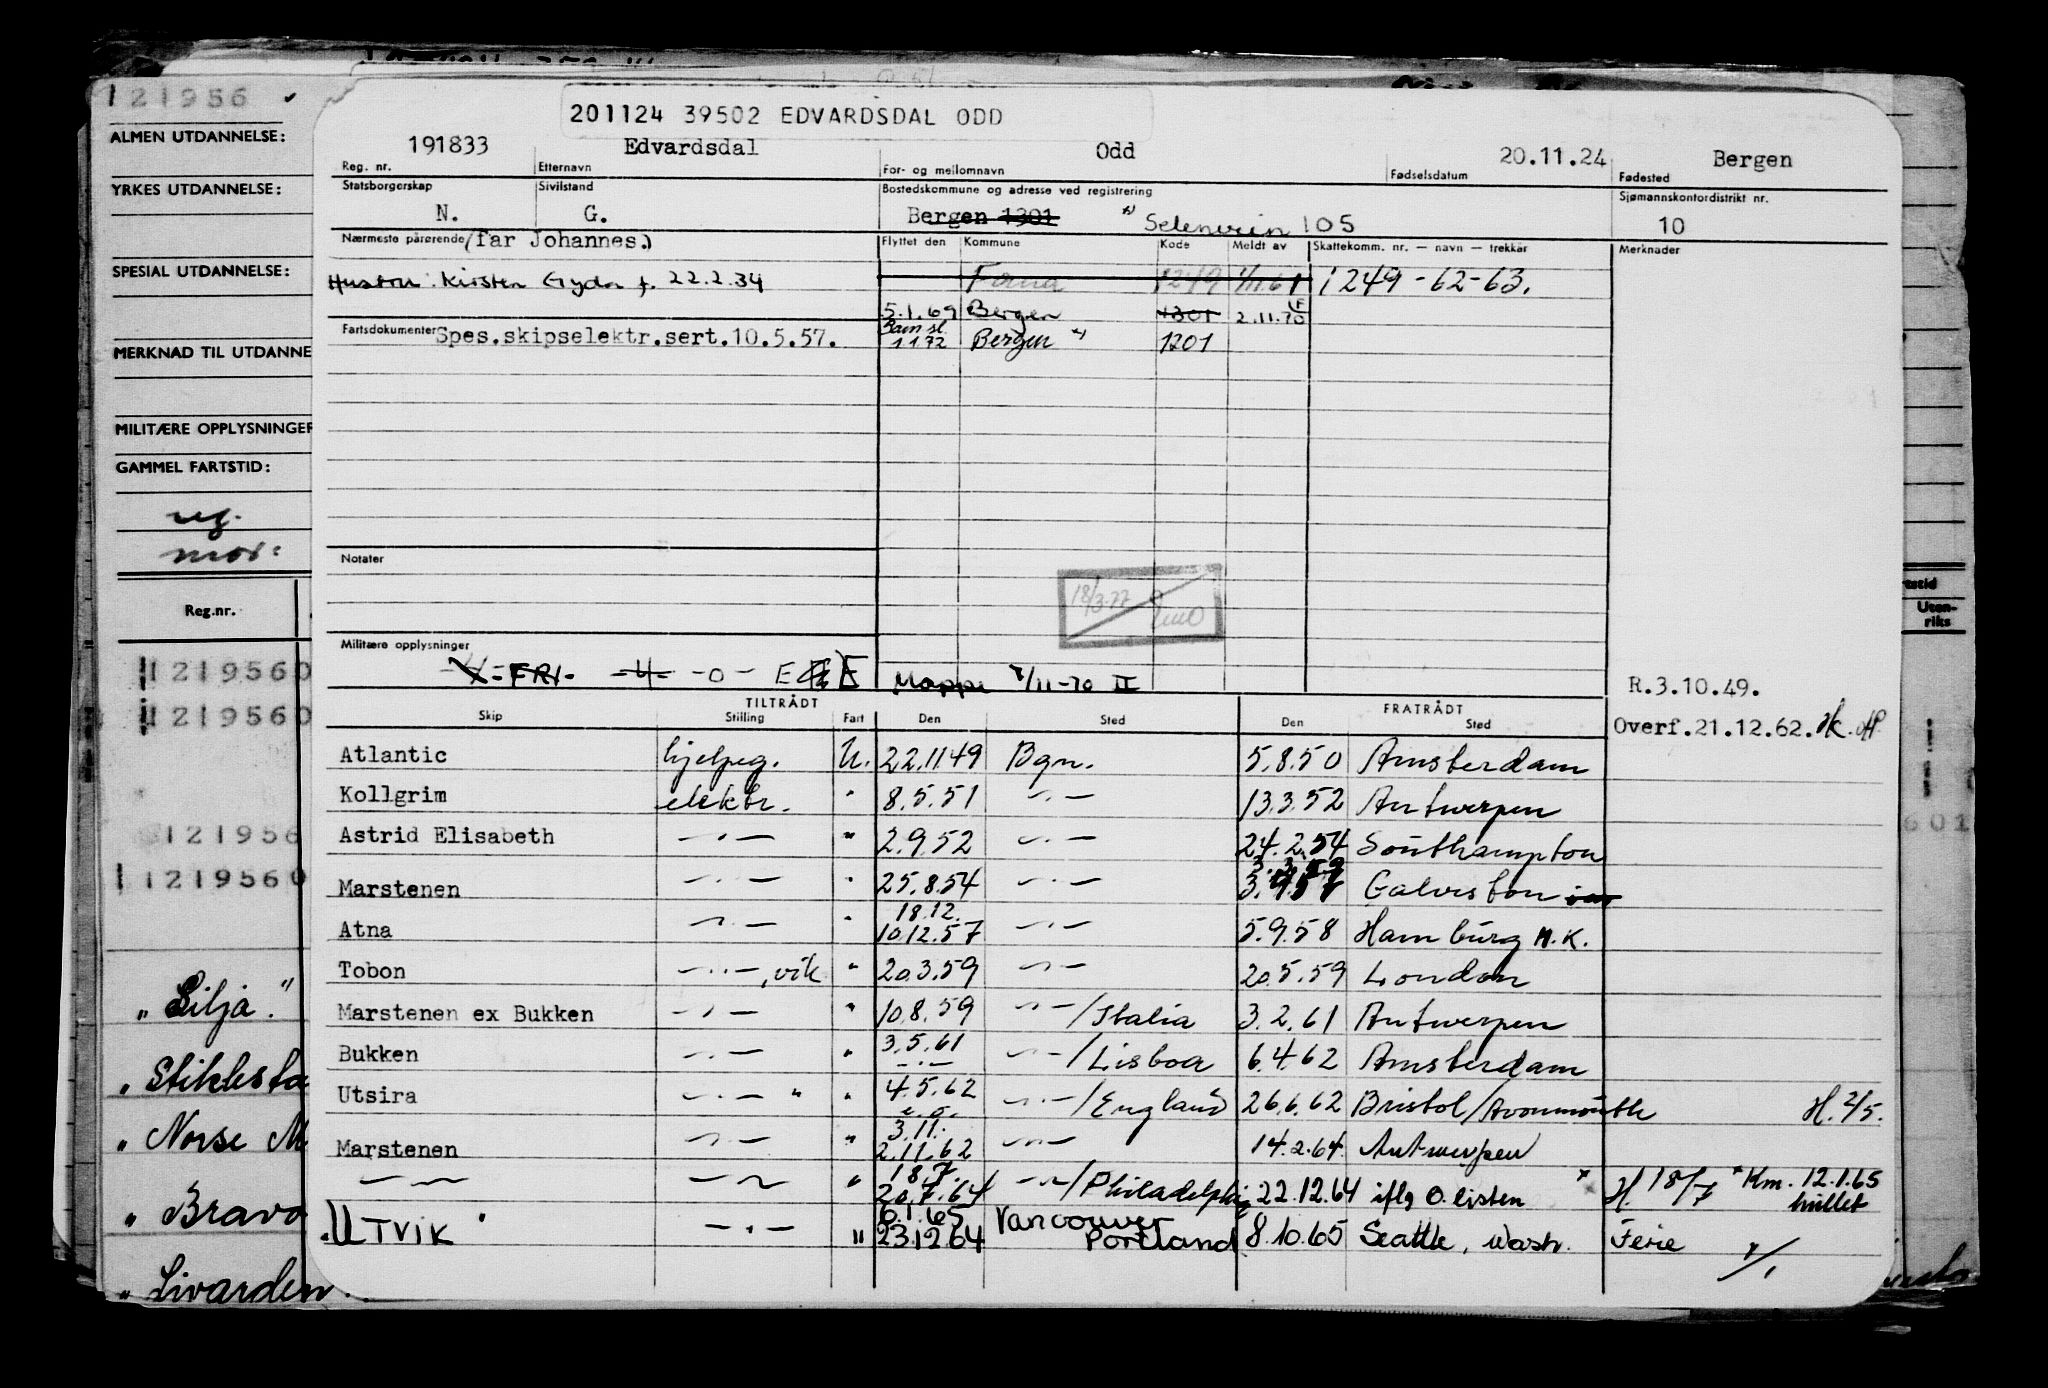 121956
ALMEN UTDANNELSE:
YRKES UTDANNELSE:
SPESIAL UTDANNELSE:
MERKNAD TIL UTDANNE
MILITÆRE OPPLYSNINGER
GAMMEL FARTSTID:
Reg.nr.
1219560
1219560
121956
1219560
"Silja."
"Stiklesta
"Norse M
"Bravo
"Livarden
Uten-
riks
601
201124 39502 EDVARDSDAL ODD
191833 Edvardsdal Odd 20.11.24 Bergen
Reg. nr. Etternavn For- og mellomnavn Fødselsdatum Fødested
Statsborgerskap Sivilstand Bostedskommune og adresse ved registrering Sjømannskontordistrikt nr.
N. G. Bergen 1301 105 10
Nærmeste pårørende (far Johannes.) Flyttet den Kommune Kode Meldt av Skattekomm. nr. — navn — trekkår Merknader
Hustru: Kirsten Gyda f. 22.2.34 Fana 1249 1/11.61 1249-62-63.
5.1.69 Bergen 1301 2.11.70
Fartsdokumenter Spes.skipselektr.sert.10.5.57. 1.1.72 Bergen 1201
Notater
18/3-77
Militære opplysninger
FRI. -4- -0- E Mappe 7/11-70 II
R.3.10.49.
TILTRÅDT FRATRÅDT
Skip Stilling Fart Den Sted Den Sted
Overf.21.12.62.
Atlantic hjelpeg. U. 22.11.49 Bgn. 5.8.50 Amsterdam
Kollgrim elektr. " 8.5.51 —"— 13.3.52 Antwerpen
Astrid Elisabeth —"— " 2.9.52 —"— 24.2.54 Southampton
Marstenen —"— " 25.8.54 —"— Galveston
18.12.
Atna —"— " 10.12.57 —"— 5.9.58 Hamburg M.K.
Tobon —"—, vik " 20.3.59 —"— 20.5.59 London
Marstenen ex Bukken —"— " 10.8.59 —"—/Italia 3.2.61 Antwerpen
Bukken —"— " 3.5.61 —"—/Lisboa 6.4.62 Amsterdam
Utsira —"— " " 4.5.62 —"—/England 26.6.62 Bristol/Avonmouth H. 2/5.
3.11.
Marstenen —"— " 2.11.62 —"— 14.2.64. Antwerpen
18.7.
—"— —"— " 20.7.64 —"—/Philadelphia 22.12.64 iflg O.listen x H. 18/7 x Km. 12.1.65
hullet
6.1.65 Vancouver
"UTVIK" —"— " 23.12.64 Portland 8.10.65 Seattle, Wash. Ferie